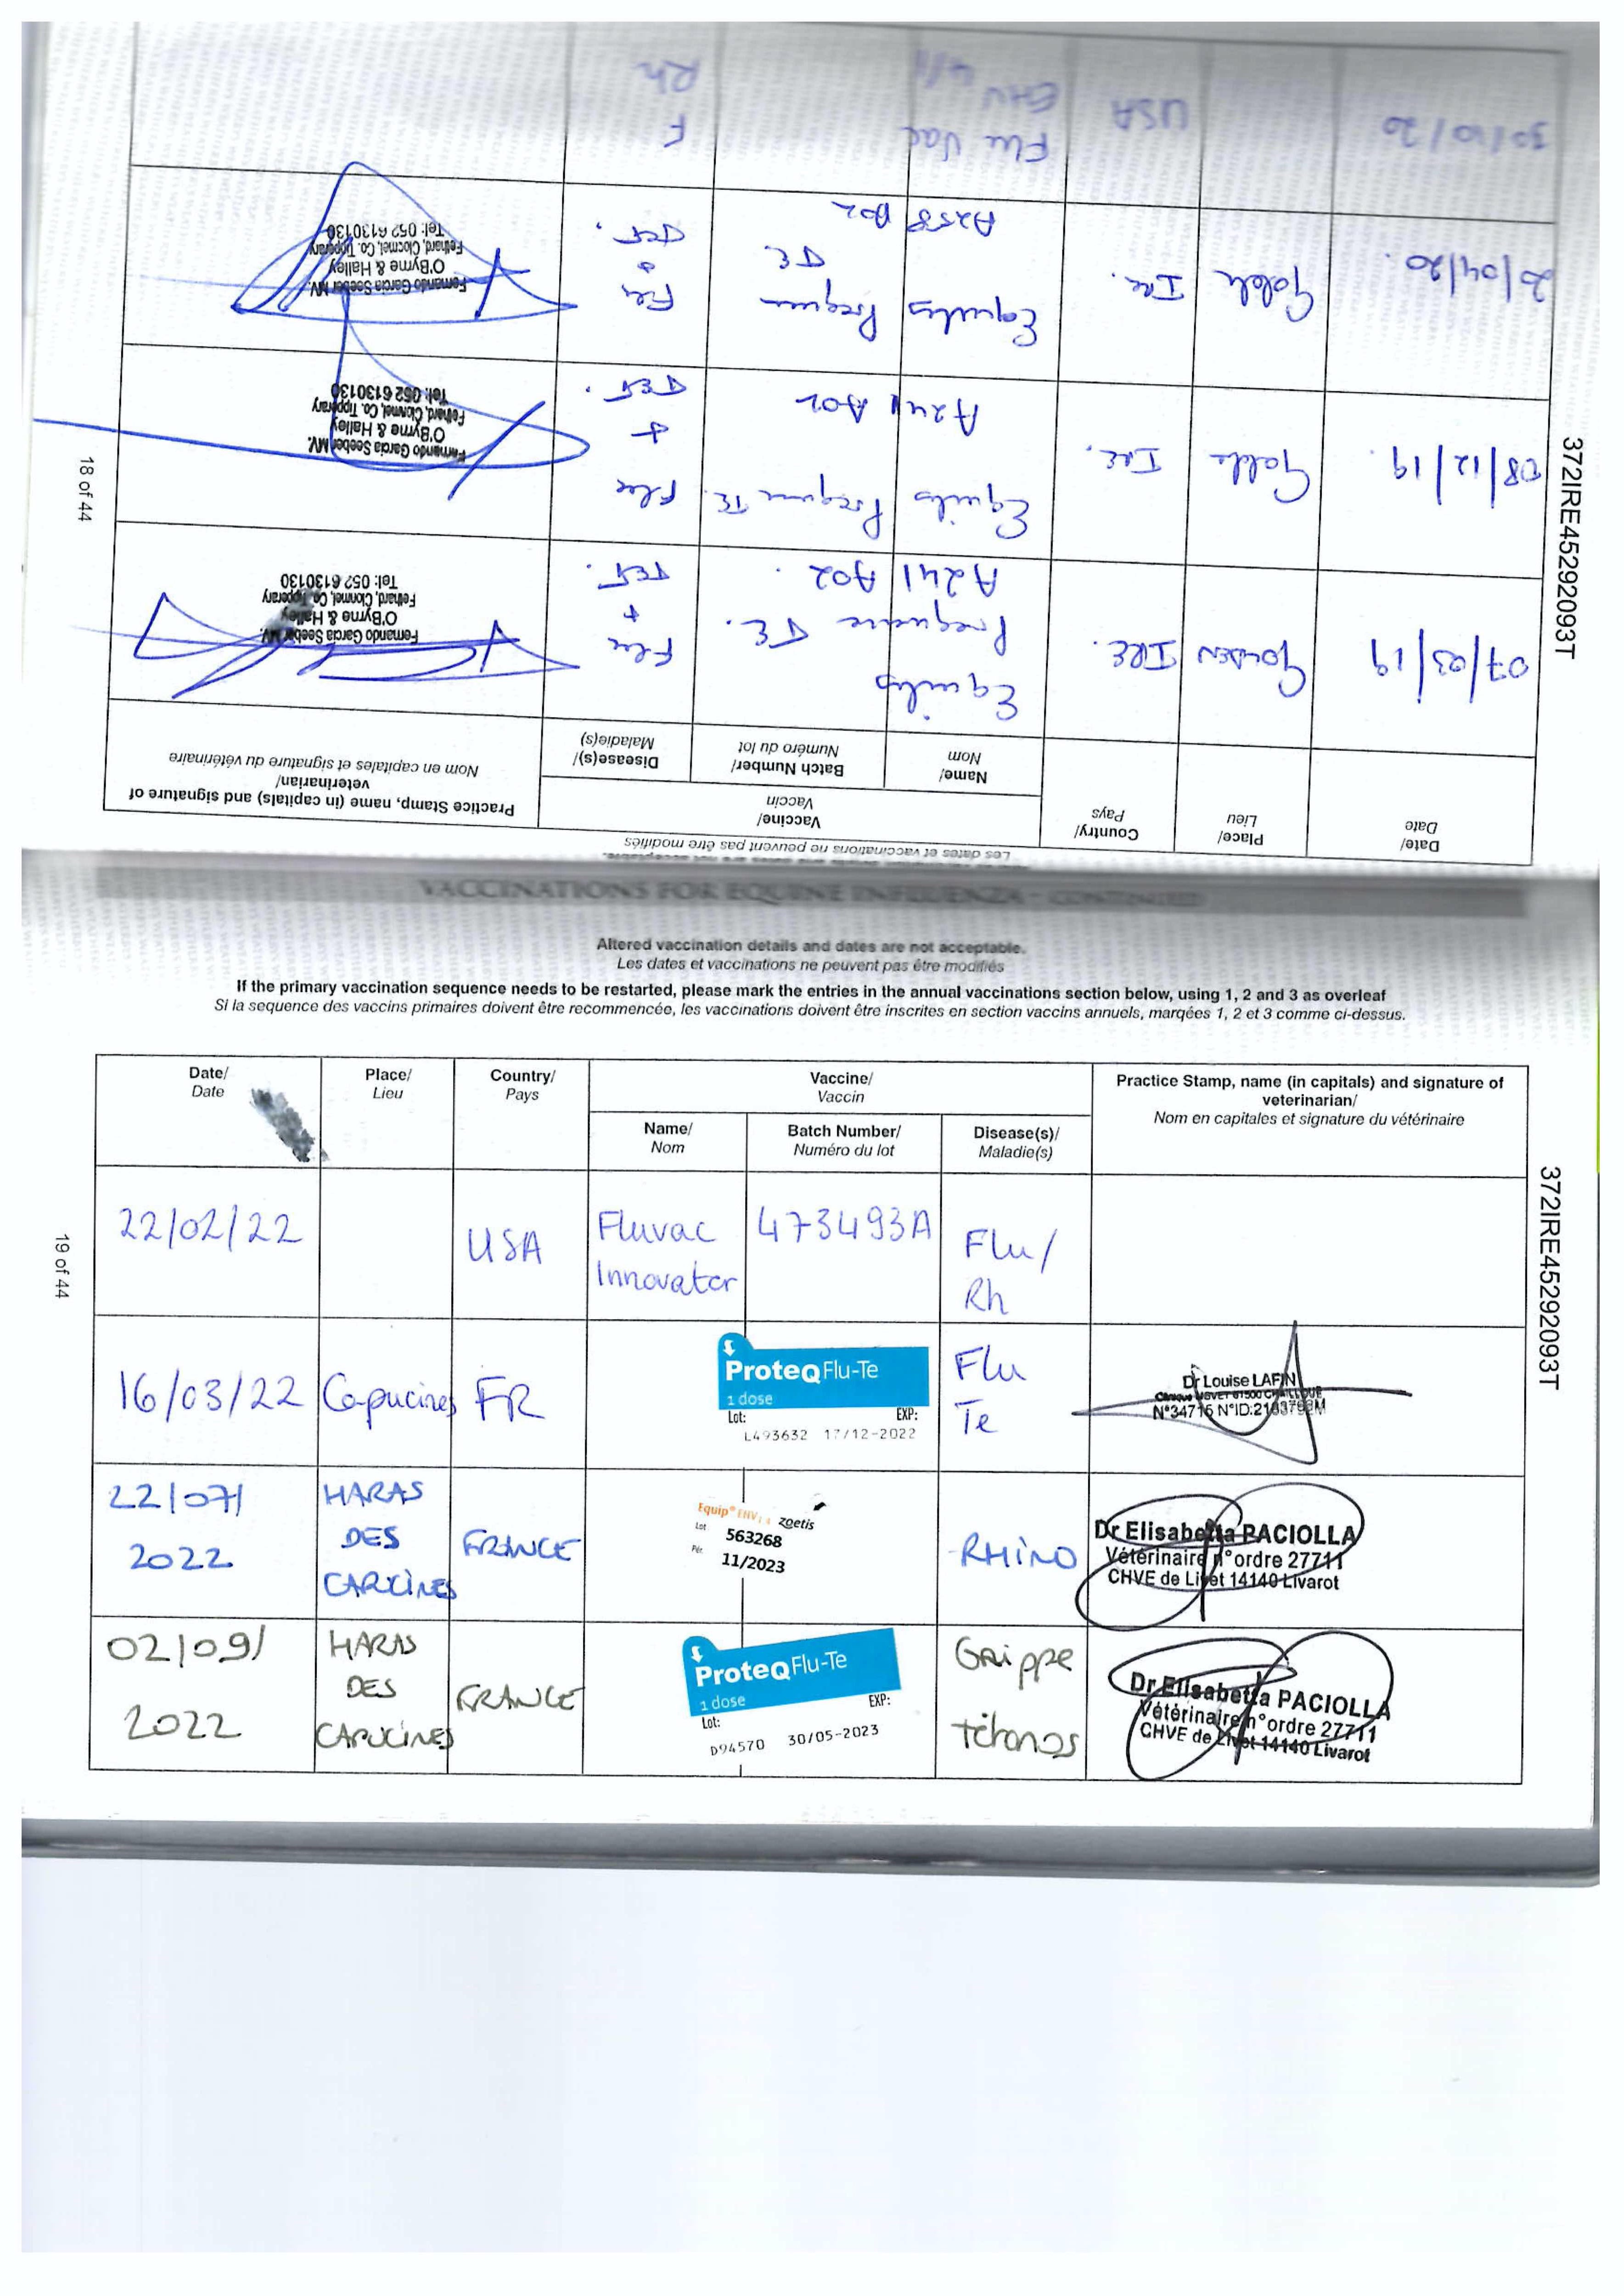 Les dates et vaccinations ne peuvent pas être modifiés
Date/
Date
Place/
Lieu
Country/
Pays
Vaccine/
Vaccin
Name/
Nom
Batch Number/
Numéro du lot
Disease(s)/
Maladie(s)
Practice Stamp, name (in capitals) and signature of
veterinarian/
Nom en capitales et signature du vétérinaire
07/03/19
GOLDEN
IRE.
Equilis
Prequenza TE.
A241 A02.
Flu
+
TET.
Fernando Garcia Seeber MV.
O'Byrne & Halley
Fethard, Clonmel, Co. Tipperary
Tel: 052 6130130
08/12/19.
Golden
IRE.
Equilis Prequenza TE.
A241 A02
Flu
+
TET.
Fernando Garcia Seeber MV.
O'Byrne & Halley
Fethard, Clonmel, Co. Tipperary
Tel: 052 6130130
20/04/20.
Golden
IRE.
Equilis Prequenza
TE
A258 B02
Flu
+
TET.
Fernando Garcia Seeber MV.
O'Byrne & Halley
Fethard, Clonmel, Co. Tipperary
Tel: 052 6130130
30/10/20
USA
Flu Vac
EHV 4/1
F
Rh
18 of 44
372IRE452920093T
VACCINATIONS FOR EQUINE INFLUENZA - CONTINUED
Altered vaccination details and dates are not acceptable.
Les dates et vaccinations ne peuvent pas être modifiés
If the primary vaccination sequence needs to be restarted, please mark the entries in the annual vaccinations section below, using 1, 2 and 3 as overleaf
Si la sequence des vaccins primaires doivent être recommencée, les vaccinations doivent être inscrites en section vaccins annuels, marqées 1, 2 et 3 comme ci-dessus.
Date/
Date
Place/
Lieu
Country/
Pays
Vaccine/
Vaccin
Name/
Nom
Batch Number/
Numéro du lot
Disease(s)/
Maladie(s)
Practice Stamp, name (in capitals) and signature of
veterinarian/
Nom en capitales et signature du vétérinaire
22/02/22
USA
Fluvac
Innovator
473493A
Flu/
Rh
16/03/22
Capucines
FR
ProteqFlu-Te
1 dose
Lot: EXP:
L493632 17/12-2022
Flu
Te
Dr Louise LAFIN
N°34715 N°ID:
22/07/
2022
HARAS
DES
CAPUCINES
FRANCE
Equip® EHV1,4 zoetis
Lot 563268
Pér. 11/2023
RHINO
Dr Elisabetta PACIOLLA
Vétérinaire n°ordre 27711
CHVE de Livet 14140 Livarot
02/09/
2022
HARAS
DES
CAPUCINES
FRANCE
ProteqFlu-Te
1 dose
Lot: EXP:
D94570 30/05-2023
Grippe
tétanos
Dr Elisabetta PACIOLLA
Vétérinaire n°ordre 27711
CHVE de Livet 14140 Livarot
19 of 44
372IRE452920093T